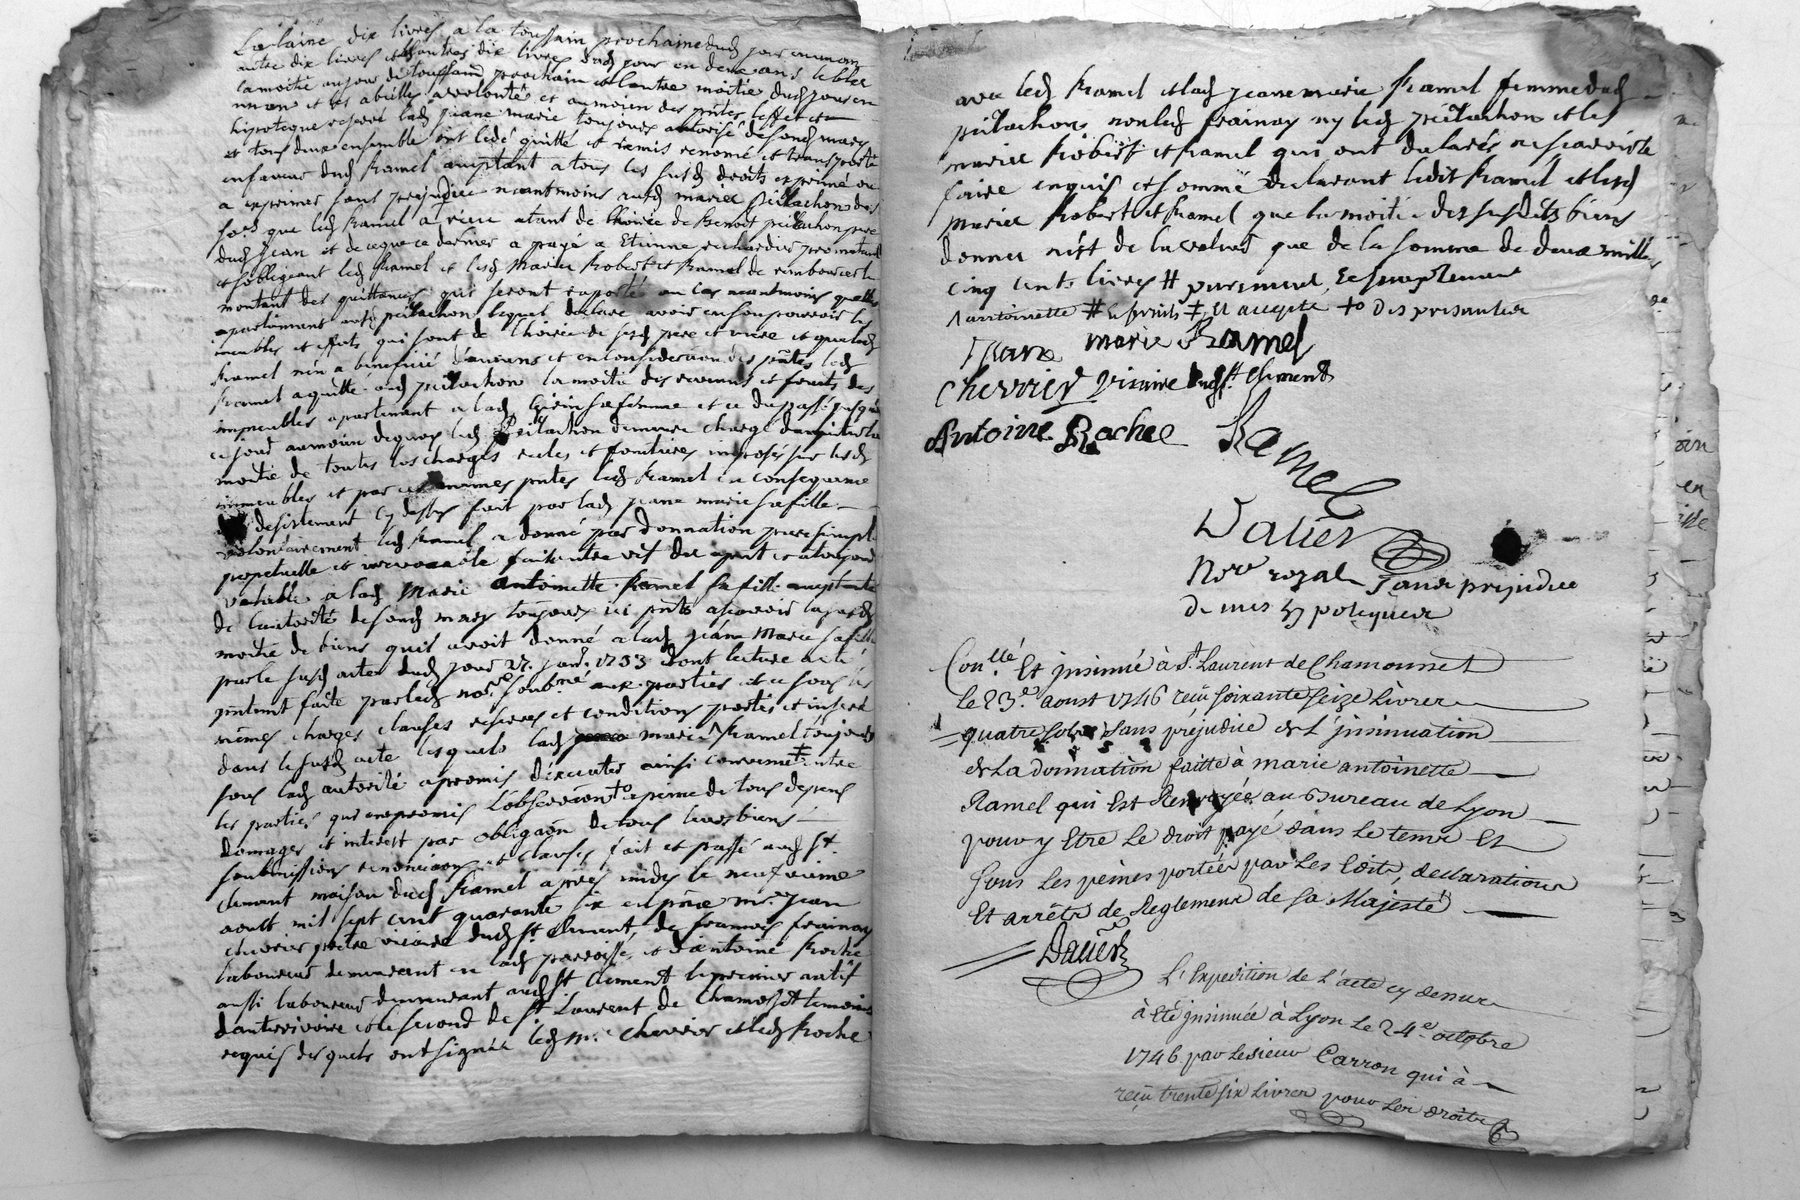 La laine dix livres a la toussain prochaine dud jour en un an
autre dix livres et autres dix livres dud jour en deux ans le bled
la moitié au jour de toussaind prochain et lautre moitié dud jour en
un an et les abeilles a volonté et au moien des pntes
hipoteque reservé lad jeane marie toujours autorisé de sond mary
et tous deux ensemble ont cedé quitté et remis renoncé et transporté
en faveur dud Ramel acceptant a tous les susd droits exprimé ou
a exprimer sans prejudice neantmoins ausd mariés pietlachon des
que led Ramel a receu etant de lhoirie de Benoit pere
dud jean et de ce que ce dernier a payé a Etienne promettant
et sobligeant led Ramel et lesd Mariés Robert et Ramel de rembourser le
montant des quittances qui seront raporté au cas neantmoins quelles
apartiennent aud lequel declare avoir en son pouvoir les
meubles et effets qui sont de lhoirie de sesd pere et mere et que led
Ramel n'en a beneficié daucuns et en consideration des pntes led
Ramel a quitté aud la moitié des revenus et fruits des
immeubles apartenant a lad sa femme et ce du passé jusqua
ce jour au moien de quoy led demeure chargé dacquitter la
moitié de toutes les charges reeles et foncieres imposés sur lesd
immeubles et par ces memes pntes led Ramel en consequence
du desistement cy dessus fait par lad jeane marie sa fille
volontairement led Ramel a donné par donnation pure simple
perpetuelle et irrevocable faite entre vif des apnt et a toujours
valable a lad Marie antoinette Ramel sa fille acceptante
de lautorité de sond mary toujours ici pnte asçavoir la susd
moitié de biens quil avoit donné a lad jeane Marie sa fille
par le susd acte dud jour 27. janr. 1733 dont lecture a eté
presentement faite par led nore. soub.né aux parties et ce sous les
mêmes charges clauses reserves et conditions portés et inseré
dans le susd acte lesquels lad marie Ramel toujours
sous lad autorité a promis d'executer ainsi convenu ‡ entre
les parties qui ont promis L'observation a peine de tous depens
domages et interest par obligaôn de tous leurs biens
soubmissions renonciaons et clauses fait et passé aud St.
clement maison dud Ramel apres midy le neufvieme
aoult mil sept cent quarante six en pnce mre. jean
cherrier pretre vicaire dud St. Clement, de francois frainay
laboureur demeurant en lad parroisse et d'antoine Roche
aussi laboureur demeurant aud St. clement le premier natif
dantrevivoire et le second de St. Laurent de Chamosset temoins
requis desquels ont signée led Mr. Cherrier et led Roche
avec led Ramel et lad jeane marie Ramel femme dud
non led frainay ny led et les
mariés Robert et Ramel qui ont declarés ne sçavoir le
faire enquis et sommé declarant ledit Ramel et lesd
mariés Robert et Ramel que la moitié des susdits biens
donnés n'est de la valeur que de la somme de deux mille
cinq cents livres # purement, Et simplement
/ antoinette # Et fruits ‡ Et accepte +o Des presentes
jeane marie Ramel
Cherrier Vicaire dud St Clement
Antoine Roche Ramel
Daliès
Nore royal Sans prejudice
de mes
Conllé Et insinué à St. Laurent de Chamousset
Le 23e. aoust 1746 reçu soixante seize Livres
quatre sols Sans préjudice de L'insinuation
de La donnation faitte à marie antoinette
Ramel qui Est Renvoyée au Bureau de Lyon
pour y Etre Le droit payé dans Le tems Et
Sous Les peines portées par Les Edits, declarations
Et arrêts de Reglement de Sa Majesté
Daliès
L'Expedition de L'acte cy dessus
à Eté insinuée à Lyon Le 24e octobre
1746 par Lesieur Carron qui à
reçu trente six Livres pour Les droits